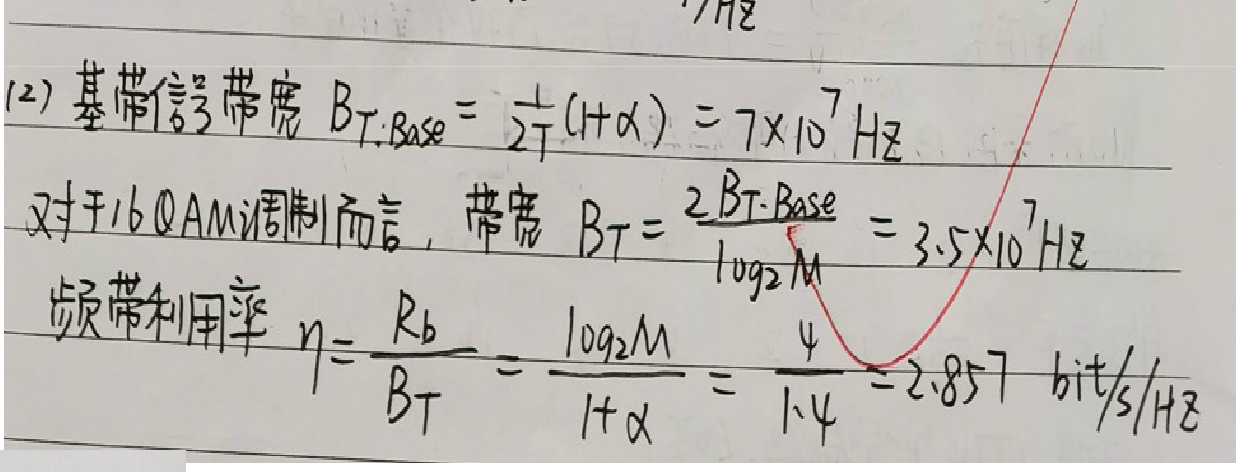 /Hz
(2) 基带信号带宽 B_{T·Base} = \frac{1}{2T}(1+α) = 7×10^7 Hz
对于16QAM调制而言, 带宽 B_T = \frac{2B_{T·Base}}{log_2M} = 3.5×10^7 Hz
频带利用率 η = \frac{R_b}{B_T} = \frac{log_2M}{1+α} = \frac{4}{1.4} = 2.857 bit/s/Hz